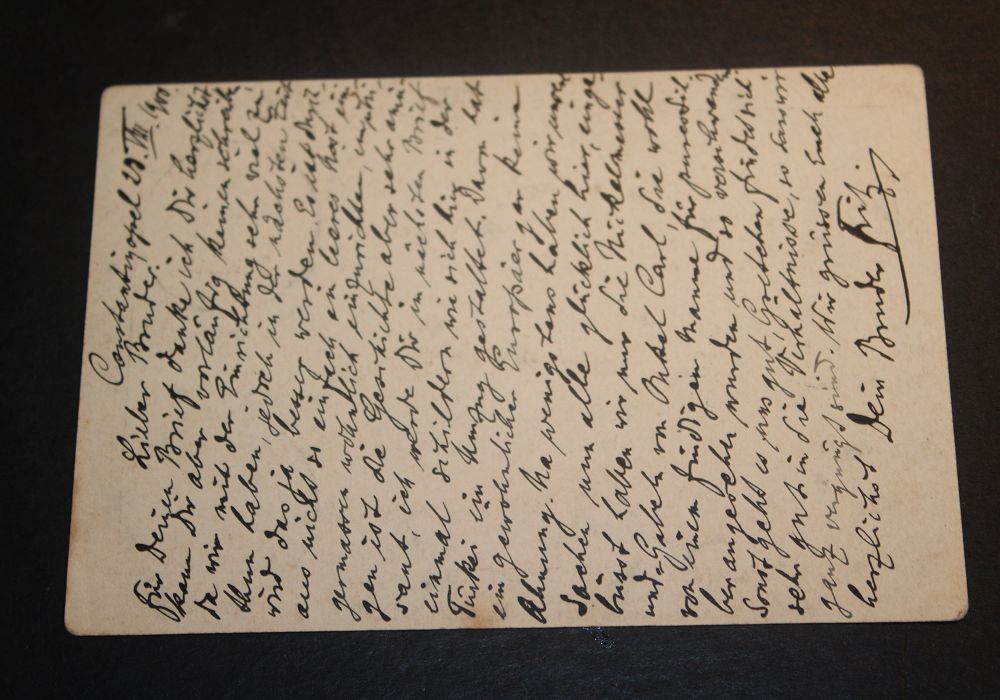 Constantinopel 20. VIII. 1901.
Lieber Bruder.
Für Deinen Brief danke ich Dir herzlichst
kann Dir aber vorläufig keinen schreiben
da wir mit der Einrichtung sehr viel zu
thun haben, jedoch in der nächsten Zeit
wird das ja besser werden. Es ist durch-
aus nicht so einfach ein leeres Haus ein
germassen wohnlich einzurichten,
gen ist die Geschichte aber sehr amü-
sant, ich werde Dir im nächsten Brief
einmal schildern wie sich hier in der
Türkei ein Umzug gestaltet. Davon hat
ein gewöhnlicher Europäer gar keine
Ahnung. Na wenigstens haben wir unsere
Sachen nun alle glücklich hier, einge-
büsst haben wir nur die Nickelmesser
und-Gabeln von Onkel Carl, die wohl
von einem findigen Manne für
ber angesehen wurden und so verschwanden
Sonst geht es uns gut Gretchen findet sich
sehr gut in die Verhältnisse, so dass wir
ganz vergnügt sind. Wir grüssen Euch alle
herzlichst Dein Bruder Fritz.